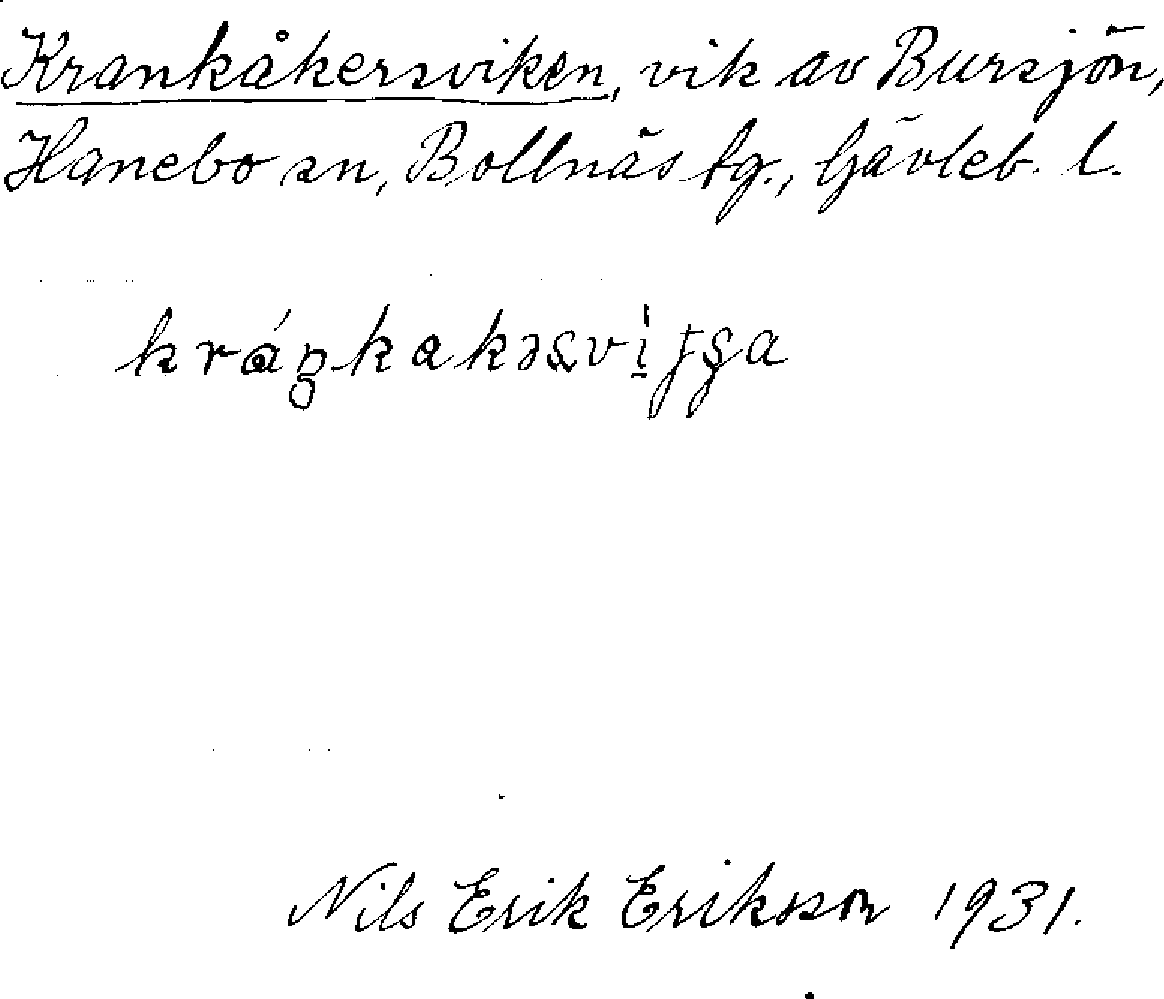 Krankåkersviken, vik av Bursjön,
Hanebo sn, Bollnäs tg., Gävleb. l.
Nils Erik Eriksson 1931.